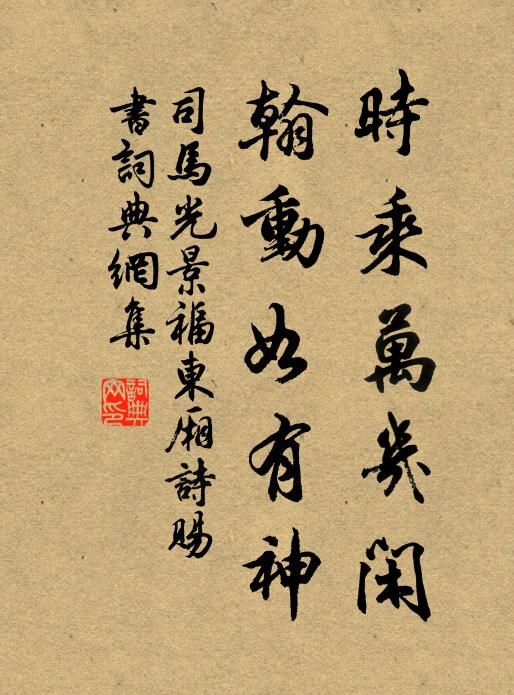 時乘萬幾閑
翰動如有神
司馬光景福東廂詩賜
書詞典網集
詞典